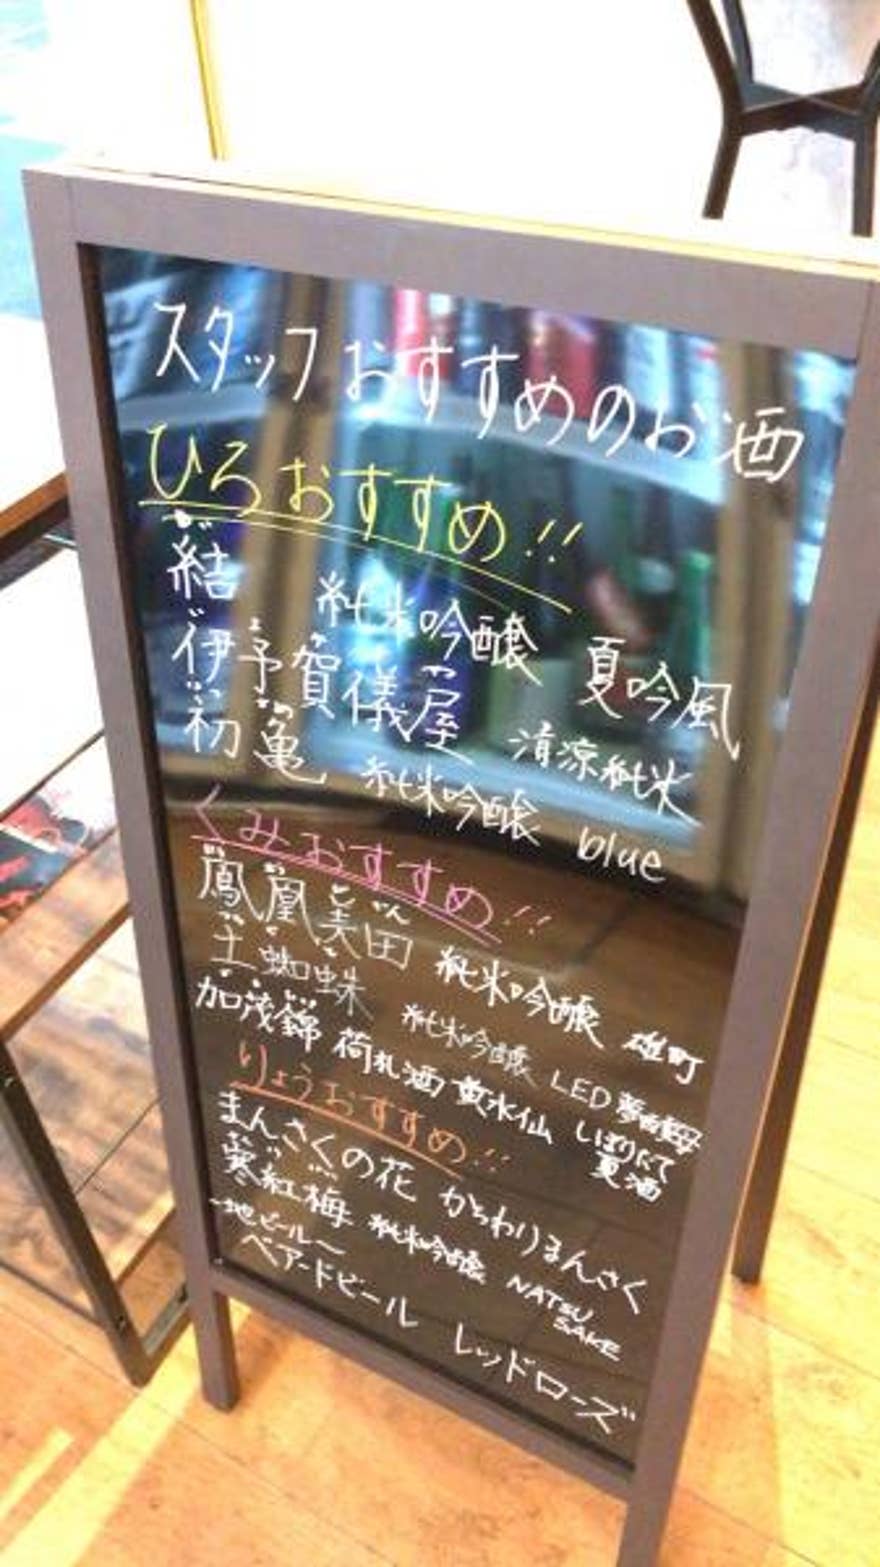 スタッフおすすめのお酒
ひろおすすめ!!
結 純米吟醸 夏吟風
伊予賀儀屋 清涼純米
初亀 純米吟醸 blue
くみおすすめ!!
鳳凰美田 純米吟醸 雄町
土蜘蛛 純米吟醸 LED夢酵母
加茂錦 荷札酒 黄水仙 しぼりたて
夏酒
りょうおすすめ!!
まんさくの花 かちわりまんさく
寒紅梅 純米吟醸 NATSU
SAKE
~地ビール~
ベアードビール レッドローズ